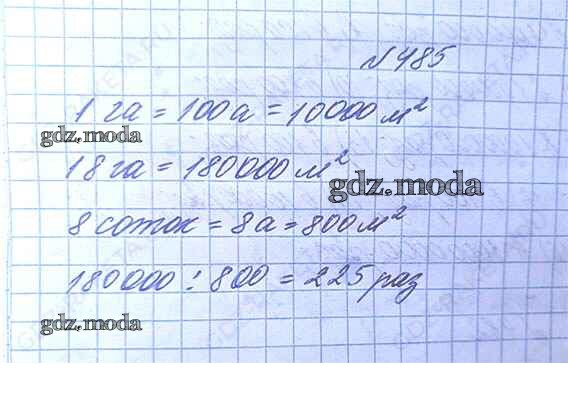 №485
1 га = 100 а = 10000 м²
gdz.moda
18 га = 180000 м²
gdz.moda
8 соток = 8 а = 800 м²
180000 : 800 = 225 раз
gdz.moda